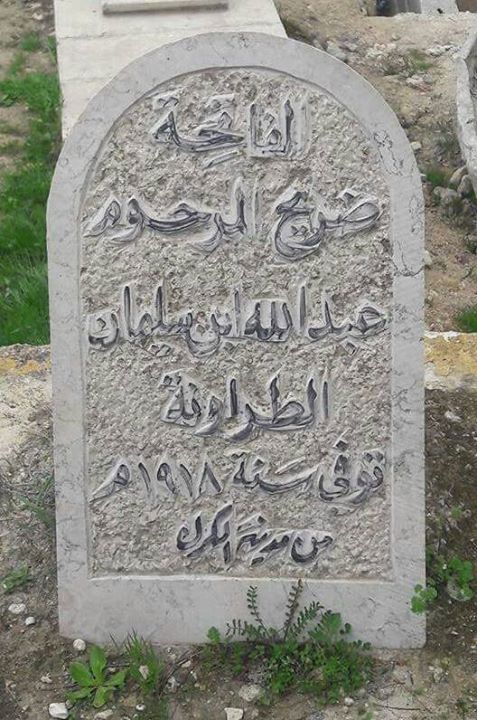 الفاتحة
ضريح المرحوم
عبد الله ابن سليمان
الطراونة
توفي سنة ١٩١٨م
من مدينة الكرك